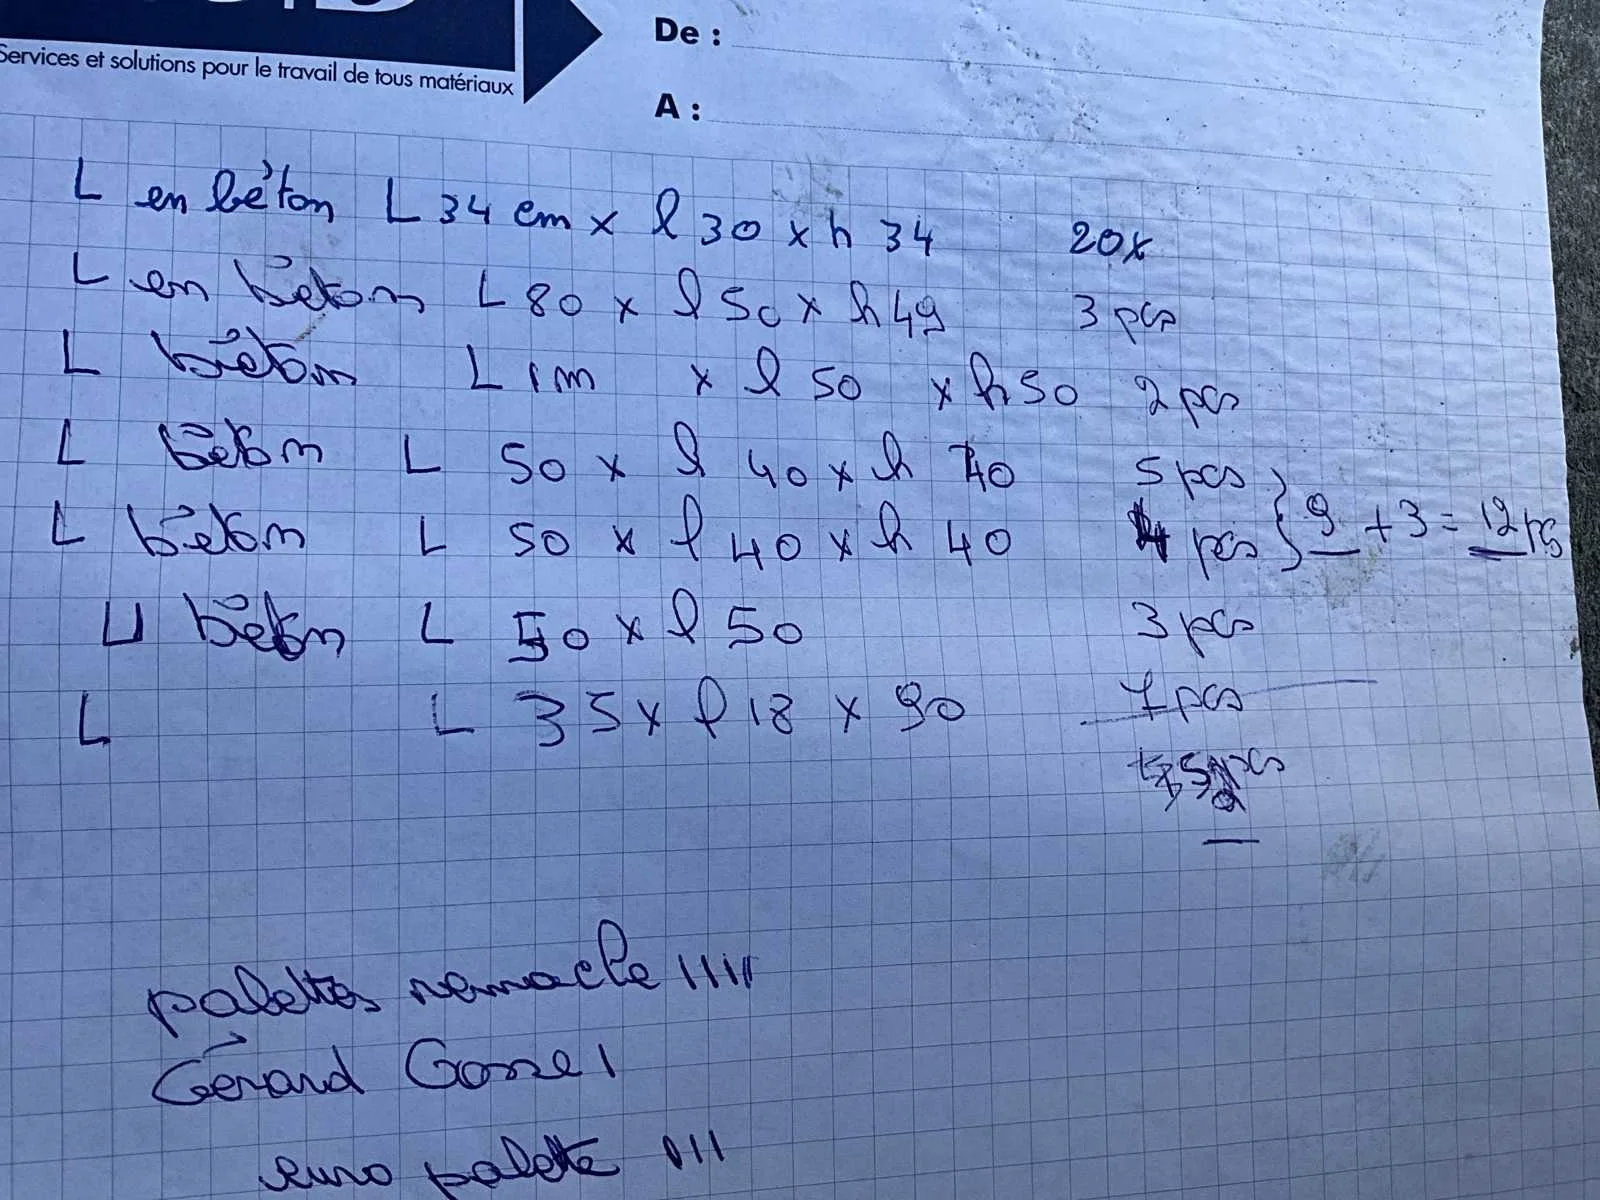 Services et solutions pour le travail de tous matériaux
De :
A :
L en béton L 34 cm x l 30 x h 34 20x
L en béton L 80 x l 50 x h 49 3 pcs
L béton L 1m x l 50 x h 50 2 pcs
L béton L 50 x l 40 x h 40 5 pcs
L béton L 50 x l 40 x h 40 4 pcs } 9 + 3 = 12 pcs
U béton L 50 x l 50 3 pcs
L L 35 x l 18 x 90 7 pcs
pcs
palettes remacle IIIII
Gérard Gosse I
euro palette IIII